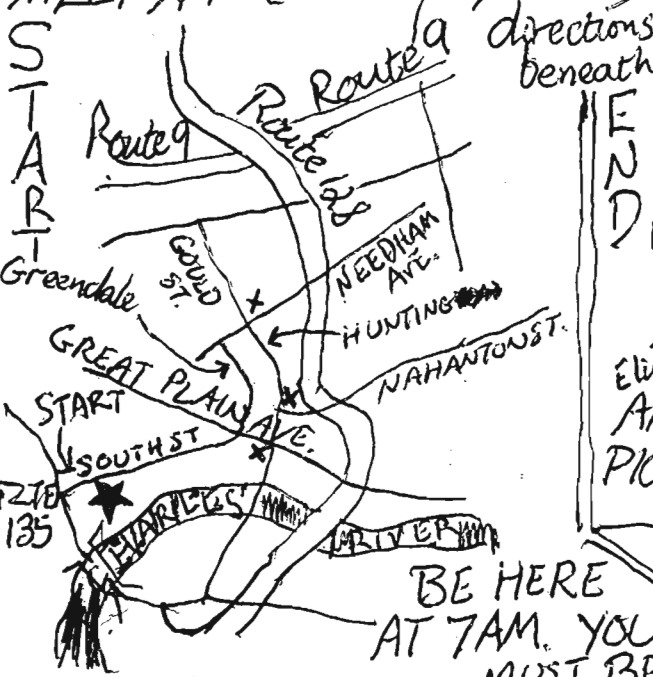 START
directions
beneath
Route 9
Route 9
Route 128
END
GOULD
ST.
NEEDHAM
AVE.
Greendale
HUNTING
NAHANTON ST.
GREAT PLAIN AVE.
START
SOUTH ST
135
CHARLES
RIVER
BE HERE
AT 7AM. YOU
MUST BE